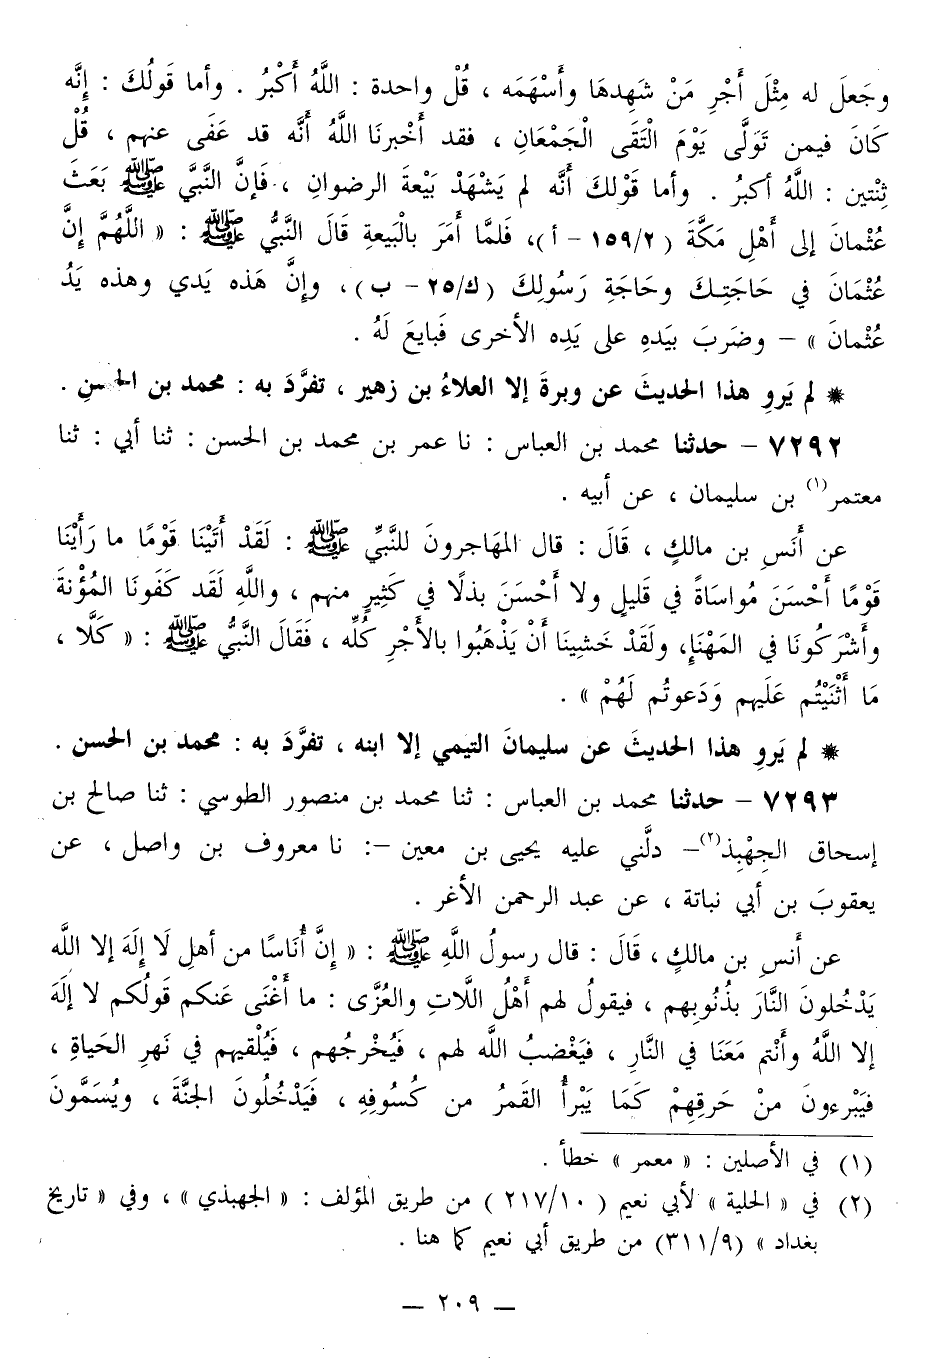 وجَعلَ له مِثْلَ أَجْرِ مَنْ شَهِدهَا وأَسْهَمَه ، قُلْ واحدة : اللَّهُ أَكْبرُ . وأما قَولُكَ : إِنَّه
كَانَ فيمن تَوَلَّى يَوْمَ الْتَقَى الْجَمْعَانِ ، فقد أَخْبرنَا اللَّهُ أَنَّه قد عَفَى عنهم ، قُلْ
ثِنْتين : اللَّهُ أكبرُ . وأما قَوْلكَ أَنَّه لم يَشْهَدْ بَيْعةَ الرضوانِ ، فَإنَّ النَّبيَّ ﷺ بَعَثَ
عُثْمانَ إلى أَهْلِ مَكَّةَ (١٥٩/٢ - أ)، فَلمَّا أَمَرَ بالْبَيعةِ قَالَ النَّبيُّ ﷺ : « اللَّهُمَّ إنَّ
عُثْمَانَ في حَاجَتِكَ وحَاجَةِ رَسُولِكَ (ك/٢٥ - ب) ، وإِنَّ هَذه يَدي وهذه يَدُ
عُثْمانَ » - وضَربَ بيَدهِ على يَدِه الأخرى فَبايعَ لَهُ .
* لم يَروِ هذا الحديثَ عن وبرةَ إلا العلاءُ بن زهير ، تفرَّدَ به : محمد بن الحسنِ .
٧٢٩٢ - حدثنا محمد بن العباس : نا عمر بن محمد بن الحسن : ثنا أبي : ثنا
معتمر(١) بن سليمان ، عن أبيه .
عن أَنَسِ بن مالكٍ ، قَالَ : قال المهَاجرونَ للنَّبيِّ ﷺ : لَقَدْ أَتَيْنَا قَوْمًا ما رَأَيْنَا
قَوْمًا أَحْسَنَ مُواسَاةً في قليلٍ ولا أَحْسَنَ بذلًا في كَثِيرٍ منهم ، واللَّهِ لَقَد كَفَونَا المُؤْنةَ
وأَشْرَكُونَا في المَهْنَإِ، ولَقَدْ خَشِينَا أَنْ يَذْهَبُوا بالأَجْرِ كُلِّه ، فَقَالَ النَّبيُّ ﷺ : « كَلَّا ،
مَا أَثْنَيْتُم عَلَيهم وَدَعوتُم لَهُمْ » .
* لم يَروِ هذا الحديثَ عن سليمانَ التيمي إلا ابنه ، تفرَّدَ به : محمد بن الحسن .
٧٢٩٣ - حدثنا محمد بن العباس : ثنا محمد بن منصور الطوسي : ثنا صالح بن
إسحاق الجِهْبِذ(٢)- دلَّني عليه يحيى بن معين -: نا معروف بن واصل ، عن
يعقوبَ بن أبي نباتة ، عن عبد الرحمن الأغر .
عن أَنسِ بن مالكٍ ، قَالَ : قال رسولُ اللَّهِ ﷺ : « إنَّ أُنَاسًا من أهلِ لَا إِلَهَ إلا اللَّه
يَدْخُلونَ النَّارَ بذُنُوبِهم ، فيقولُ لهم أَهْلُ اللَّاتِ والعُزَّى : ما أَغْنَى عَنكم قَولُكم لا إلهَ
إلا اللَّهُ وأَنْتم مَعَنَا في النَّارِ ، فيَغْضبُ اللَّه لهم ، فَيُخْرجُهم ، فَيُلْقيهم في نَهرِ الحَياةِ ،
فيَبْرءونَ منْ حَرقِهِمْ كَمَا يَبْرأُ القَمرُ من كُسُوفِهِ ، فَيَدْخُلُونَ الجنَّةَ ، ويُسَمَّونَ
(١) في الأصلين : « معمر » خطأ .
(٢) في « الحلية » لأبي نعيم (٢١٧/١٠) من طريق المؤلف : « الجهبذي » ، وفي « تاريخ
بغداد » (٣١١/٩) من طريق أبي نعيم كما هنا .
— ٢٠٩ —